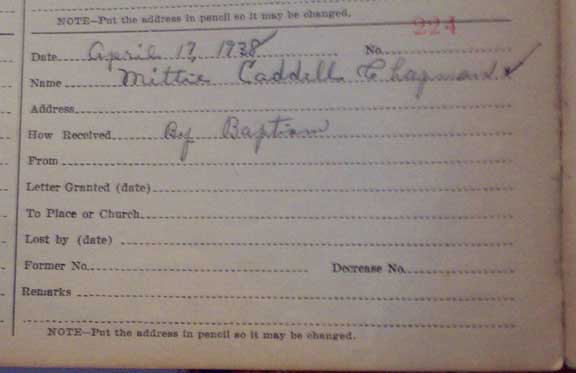 NOTE—Put the address in pencil so it may be changed.
224
Date April 17, 1938 No.
Name Mittie Caddell Chapman
Address
How Received By Baptism
From
Letter Granted (date)
To Place or Church
Lost by (date)
Former No. Decrease No.
Remarks
NOTE—Put the address in pencil so it may be changed.